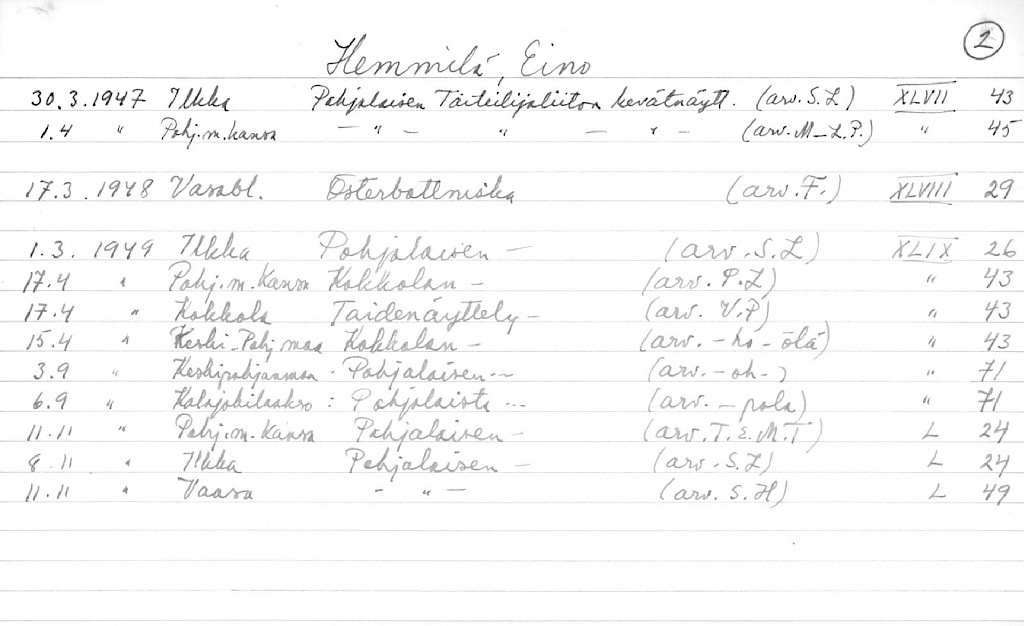 2
Hemmilä, Eino
30.3.1947 Ilkka Pohjalaisen Taiteilijaliiton kevätnäytt. (arv. S.L) XLVII 43
1.4 " Pohj.m.kansa – " – " – " – (arv. M–L.P.) " 45
17.3.1948 Vasabl. Österbottniska (arv. F.) XLVIII 29
1.3. 1949 Ilkka Pohjalaisen – (arv. S.L) XLIX 26
17.4 " Pohj.m.Kansa Kokkolan – (arv. P.L) " 43
17.4 " Kokkola Taidenäyttely – (arv. V.P) " 43
15.4 " Keski-Pohj.maa Kokkolan – (arv. – ho – ölä) " 43
3.9 " Keskipohjanmaa · Pohjalaisen -- (arv. – oh - ) " 71
6.9 " Kalajokilaakso : Pohjalaista ... (arv. – pola) " 71
11.11 " Pohj.m.Kansa Pohjalaisen – (arv. T.E.M.T) L 24
8.11 " Ilkka Pohjalaisen – (arv. S.L) L 24
11.11 " Vaasa - " – (arv. S.H) L 49